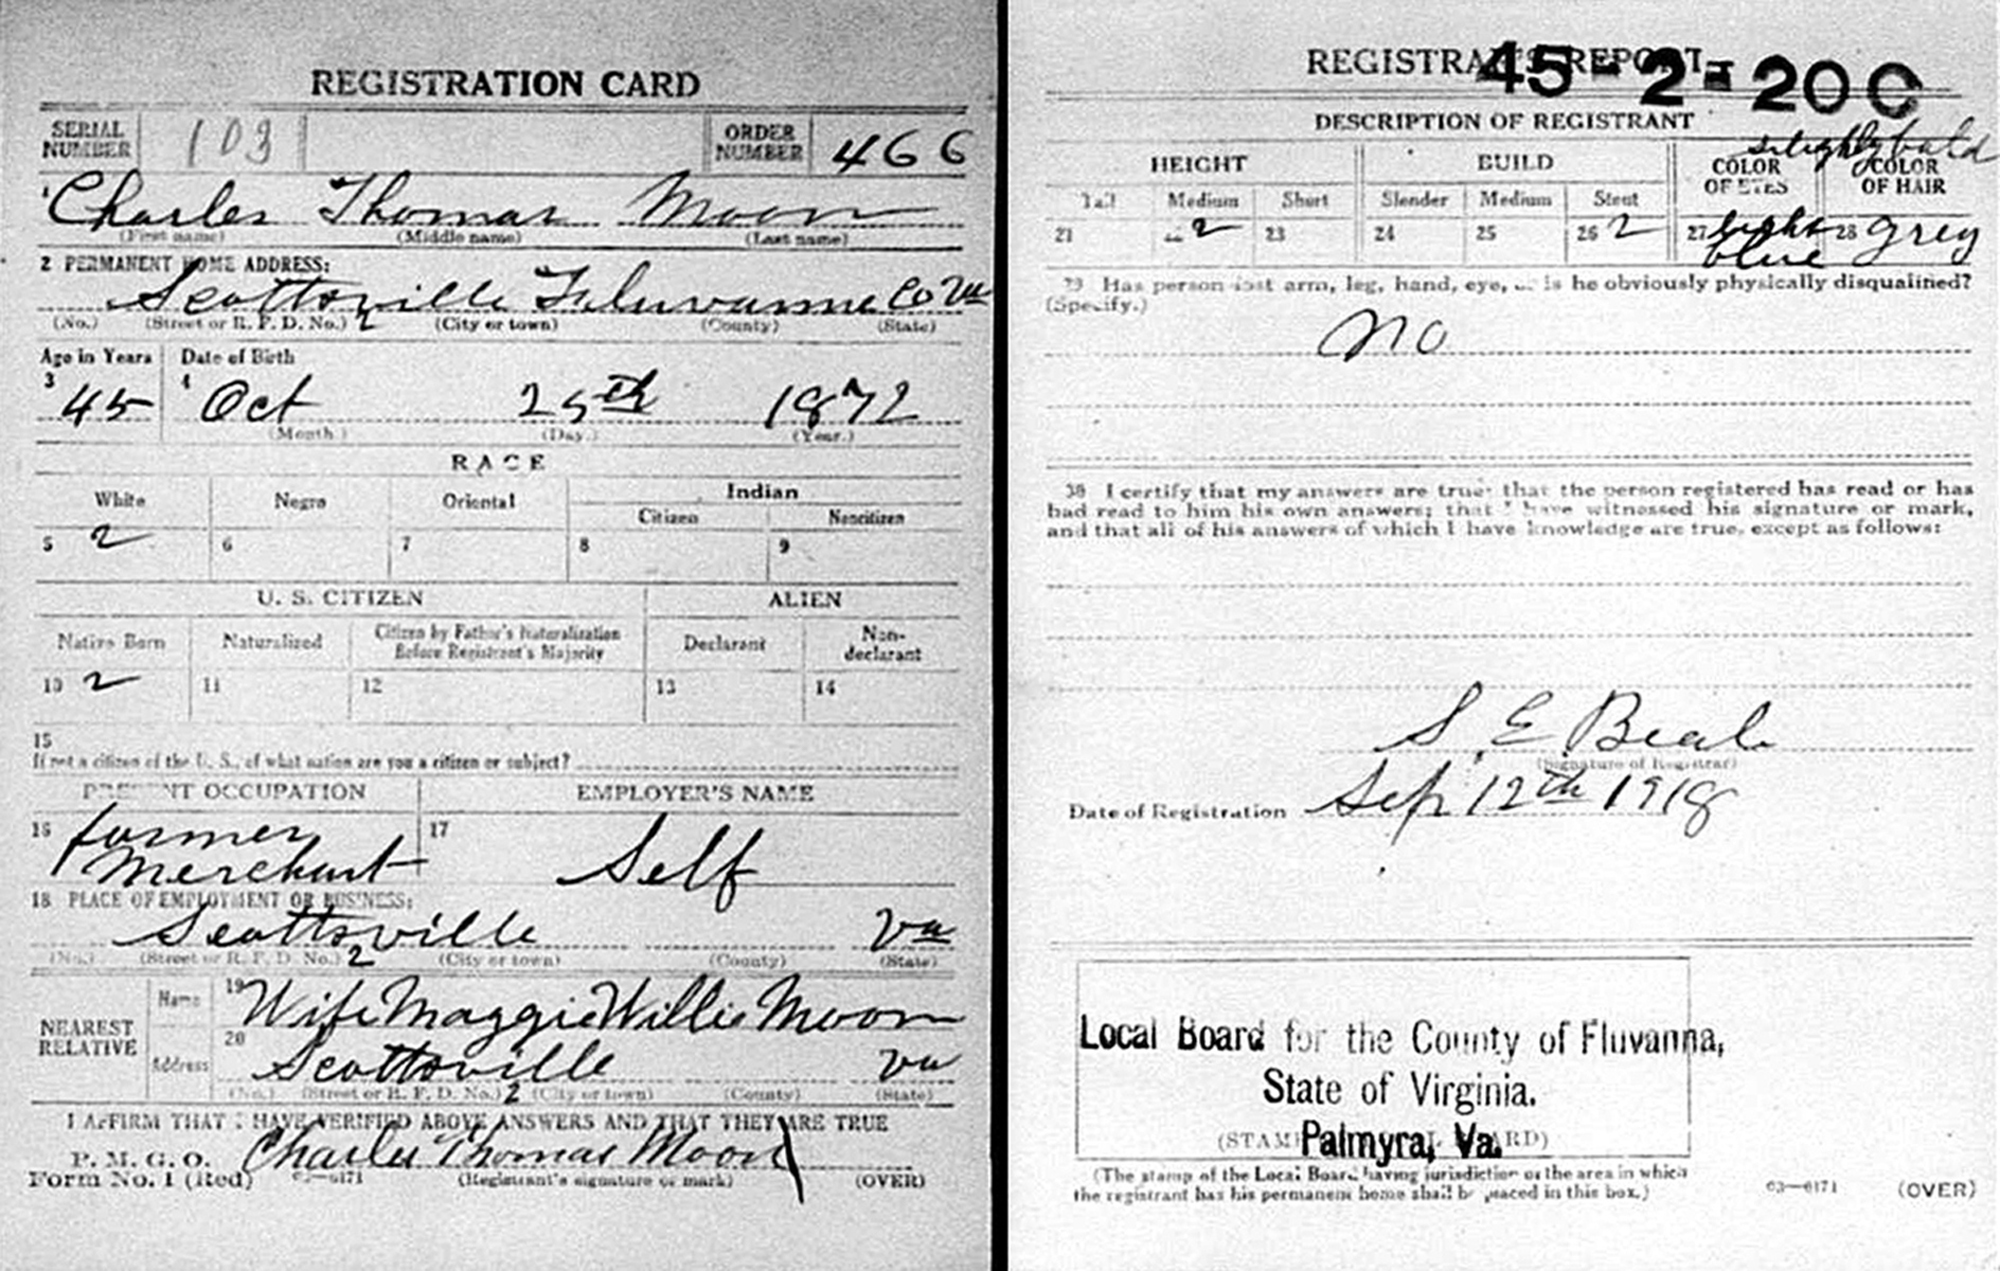 REGISTRATION CARD
SERIAL NUMBER 103 ORDER NUMBER 466
1 Charles Thomas Moon
(First name) (Middle name) (Last name)
2 PERMANENT HOME ADDRESS:
Scottsville Fluvanna Co Va
(No.) (Street or R. F. D. No.) 2 (City or town) (County) (State)
Age in Years Date of Birth
3 45 4 Oct 25th 1872
(Month.) (Day.) (Year.)
RACE
White Negro Oriental Indian
Citizen Noncitizen
5 2 6 7 8 9
U. S. CITIZEN ALIEN
Native Born Naturalized Citizen by Father's Naturalization Before Registrant's Majority Declarant Non-declarant
10 2 11 12 13 14
15
If not a citizen of the U. S., of what nation are you a citizen or subject?
PRESENT OCCUPATION EMPLOYER'S NAME
16 farmer 17
Merchant Self
18 PLACE OF EMPLOYMENT OR BUSINESS:
Scottsville Va
(No.) (Street or R. F. D. No.) 2 (City or town) (County) (State)
NEAREST RELATIVE
Name 19 Wife Maggie Willie Moon
Address 20 Scottsville Va
(No.) (Street or R. F. D. No.) 2 (City or town) (County) (State)
I AFFIRM THAT I HAVE VERIFIED ABOVE ANSWERS AND THAT THEY ARE TRUE
P. M. G. O. Charles Thomas Moon
Form No. 1 (Red) 03—6171 (Registrant's signature or mark) (OVER)
REGISTRAR'S REPORT
45-2-20 C
DESCRIPTION OF REGISTRANT
slightly bald
HEIGHT BUILD COLOR OF EYES COLOR OF HAIR
Tall Medium Short Slender Medium Stout
21 22 2 23 24 25 26 2 27 light blue 28 grey
29 Has person lost arm, leg, hand, eye, or is he obviously physically disqualified?
(Specify.)
no
30 I certify that my answers are true; that the person registered has read or has
had read to him his own answers; that I have witnessed his signature or mark,
and that all of his answers of which I have knowledge are true, except as follows:
S. E. Beal
(Signature of Registrar)
Date of Registration Sep 12th 1918
Local Board for the County of Fluvanna,
State of Virginia.
Palmyra, Va.
(The stamp of the Local Board having jurisdiction of the area in which
the registrant has his permanent home shall be placed in this box.)
03—6171 (OVER)